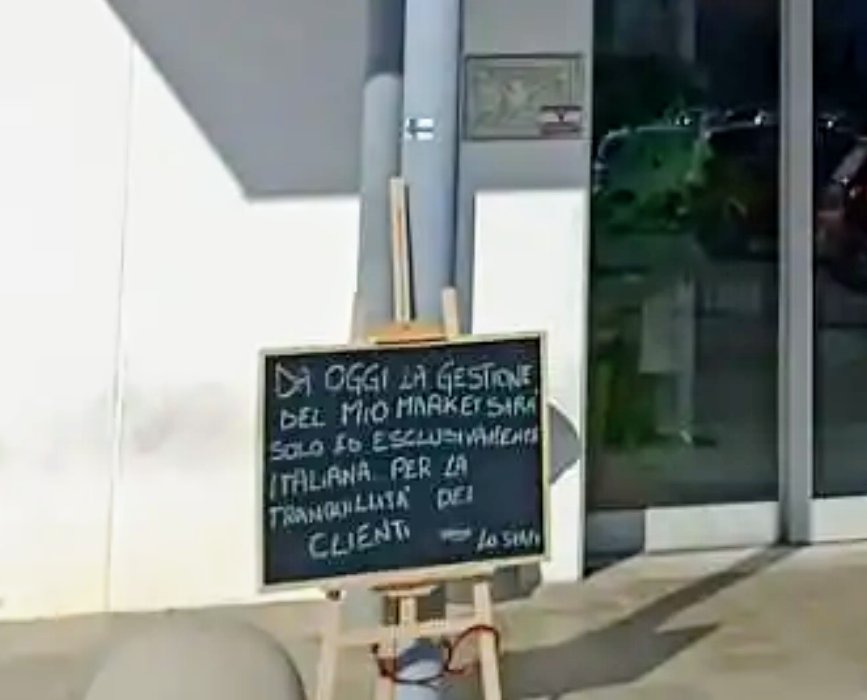 DA OGGI LA GESTIONE
DEL MIO MARKET SARÀ
SOLO ED ESCLUSIVAMENTE
ITALIANA PER LA
TRANQUILLITA' DEI
CLIENTI